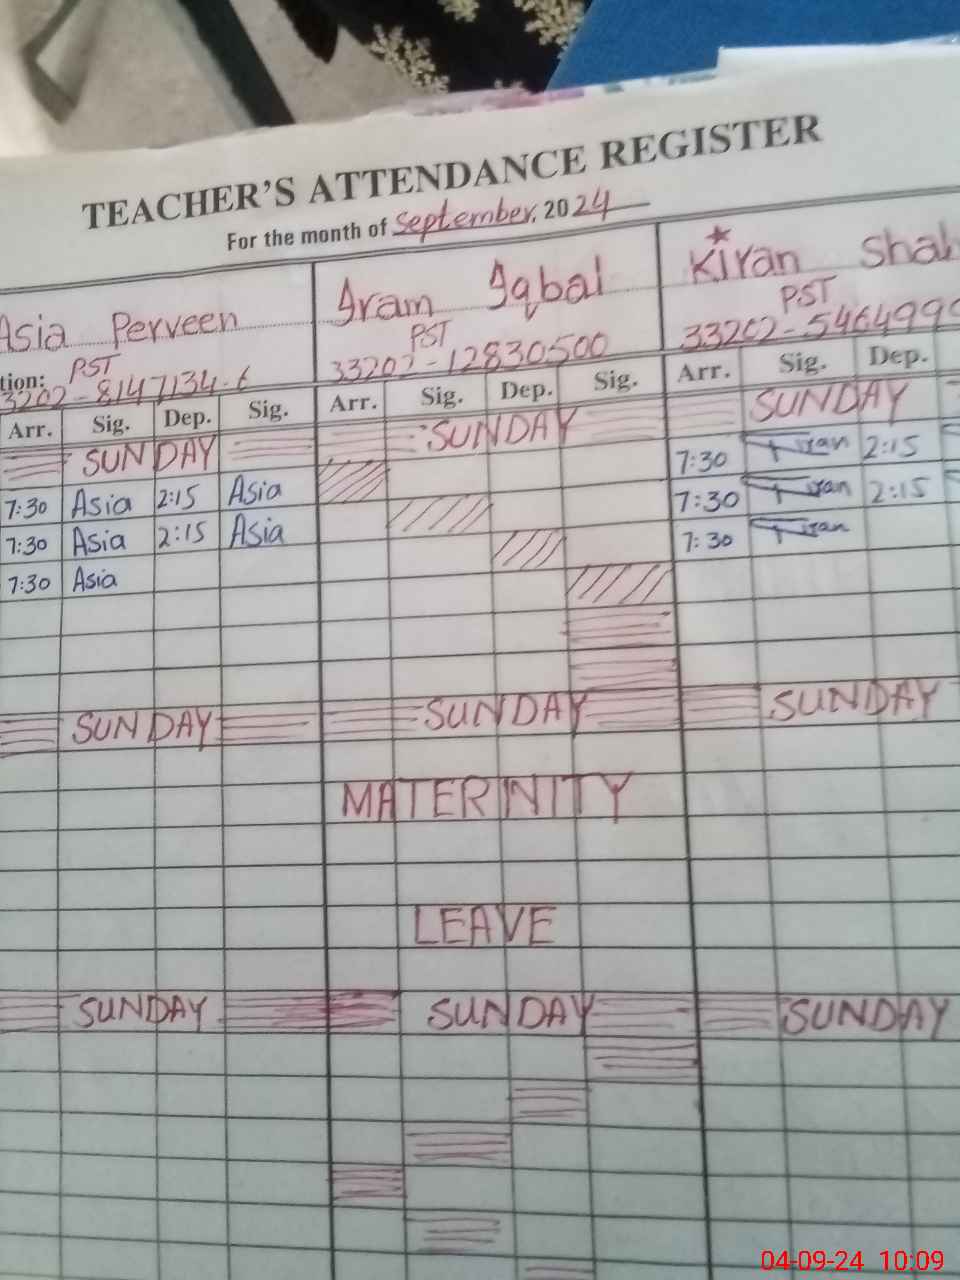 TEACHER'S ATTENDANCE REGISTER
For the month of September, 2024
Asia Perveen Iram Iqbal Kiran Shah
PST PST PST
tion: 3202-8147134-6 33202-12830500 33202-5464990
Arr. Sig. Dep. Sig. Arr. Sig. Dep. Sig. Arr. Sig. Dep.
SUNDAY SUNDAY SUNDAY
7:30 Asia 2:15 Asia 7:30 Kiran 2:15
7:30 Asia 2:15 Asia 7:30 Kiran 2:15
7:30 Asia 7:30 Kiran
SUNDAY SUNDAY SUNDAY
MATERNITY
LEAVE
SUNDAY SUNDAY SUNDAY
04-09-24 10:09